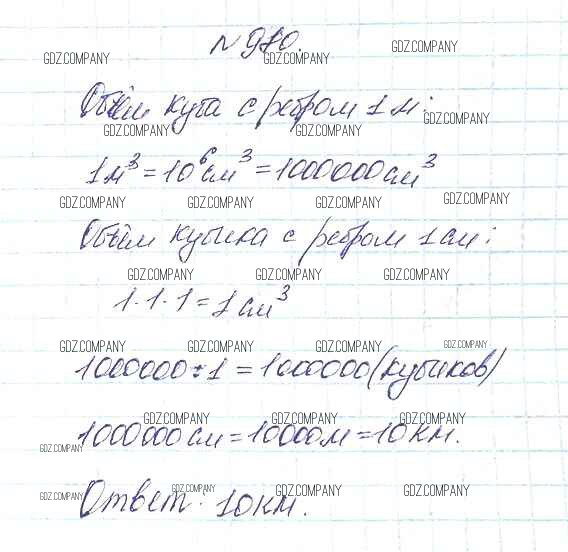 N 980.
GDZ.COMPANY GDZ.COMPANY GDZ.COMPANY
Объём куба с ребром 1 м:
GDZ.COMPANY GDZ.COMPANY GDZ.COMPANY
1м³ = 10⁶ см³ = 1000000 см³
GDZ.COMPANY GDZ.COMPANY GDZ.COMPANY GDZ.COMPANY
Объём кубика с ребром 1 см:
GDZ.COMPANY GDZ.COMPANY GDZ.COMPANY
1·1·1 = 1 см³
GDZ.COMPANY GDZ.COMPANY GDZ.COMPANY GDZ.COMPANY
1000000 : 1 = 1000000 (кубиков)
GDZ.COMPANY GDZ.COMPANY GDZ.COMPANY
1000000 см = 10000 м = 10 км.
GDZ.COMPANY
GDZ.COMPANY GDZ.COMPANY GDZ.COMPANY GDZ.COMPANY
Ответ: 10 км.